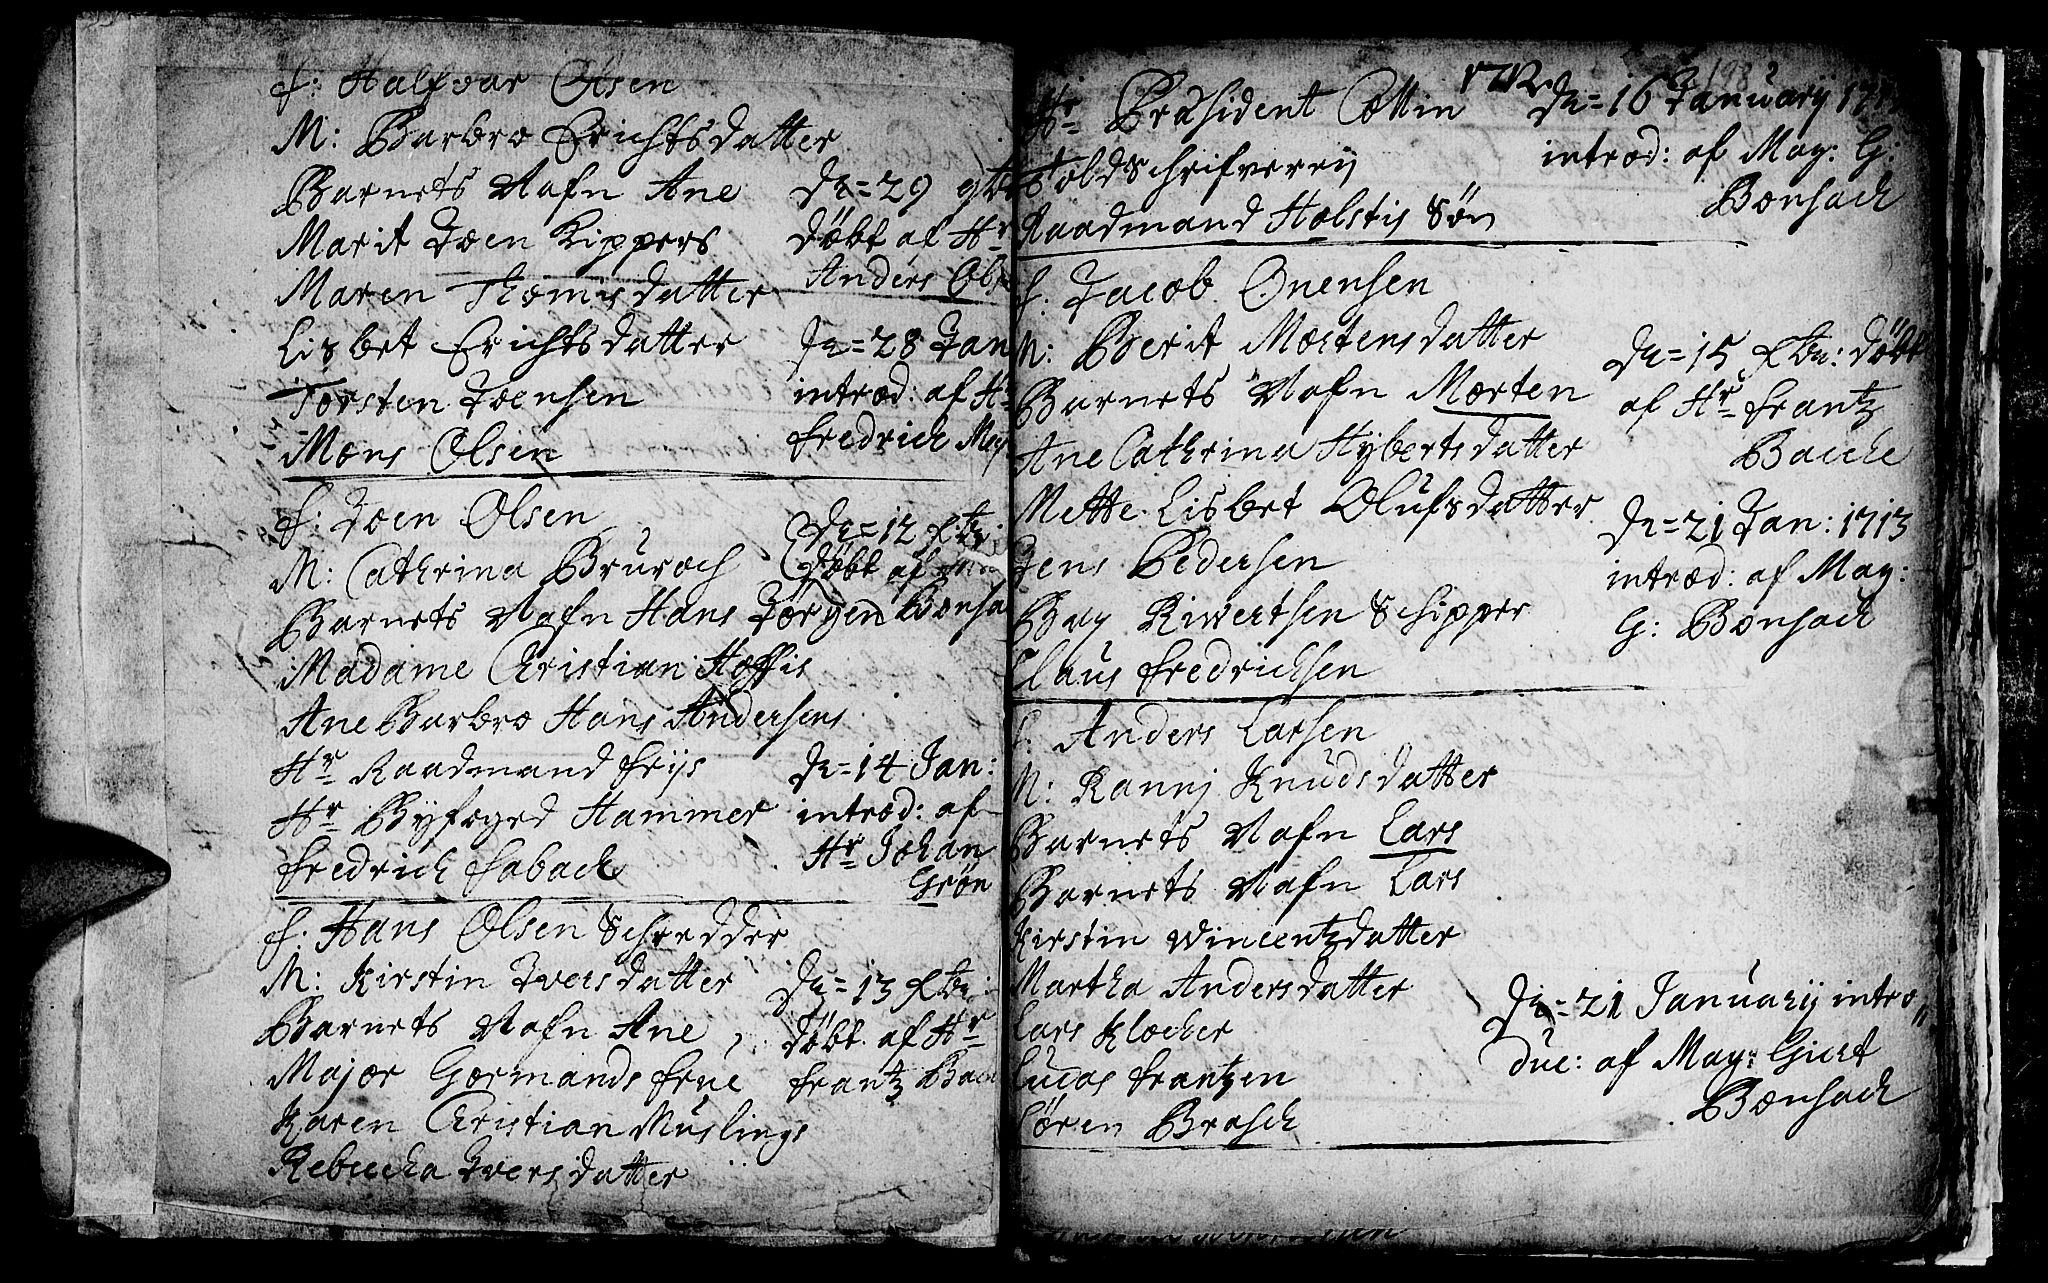 f: Halfvar Olsen
M: Barbro Erichsdatter
Barnets Nafn Ane
Marit Joen Kippers
Maren Thomisdatter
Lisbet Erichsdatter
Torsten Joensen
Mons Olsen
Dn= 29
döbt af Hr
Anders
Dn= 28 Jan
introd: af Hr
fredrich May
f: Joen Olsen
M: Cathrina Bruroch
Barnets Nafn Hans Jörgen
Madame Christian Hoffis
Ane Barbro Hans Andersens
Hr Raadmand friis
Hr Byfoged Hammer
fredrich faback
Dn= 12 xbr:
döbt af
Bonsa
Dn= 14 Jan:
introd: af
Hr Johan
Grön
f: Hans Olsen Schredder
M: Kirstin Iversdatter
Barnets Nafn Ane
Major Gormands frue
Karen Christian Muslings
Rebecka Iversdatter
Dn= 13 xbr:
döbt af Hr
frantz Bac
1712
198
Hr Præsident Collin
Toldschrifverij
Raadmand Holstis Sön
Dn= 16 Januarij 171
introd: af Mag: G:
Bonsach
f: Jacob Onensen
M: Berit Mortensdatter
Barnets Nafn Morten
Ane Cathrina Hybertsdatter
Mette Lisbet Olufsdatter
Jens Pedersen
Boy Riwertsen Schipper
Claus fredrichsen
Dn= 15 xbr: döbt
af Hr frantz
Bacche
Dn= 21 Jan: 1713
introd: af Mag:
G: Bonsach
f: Anders Larsen
M: Ranni Knudsdatter
Barnets Nafn Lars
Barnets Nafn Lars
Kirstin Vincentzdatter
Martha Andersdatter
Lars Klocker
Lucas frantzen
Sören Brasch
Dn= 21 Januarij intro
duc: af Mag: Giert
Bonsach